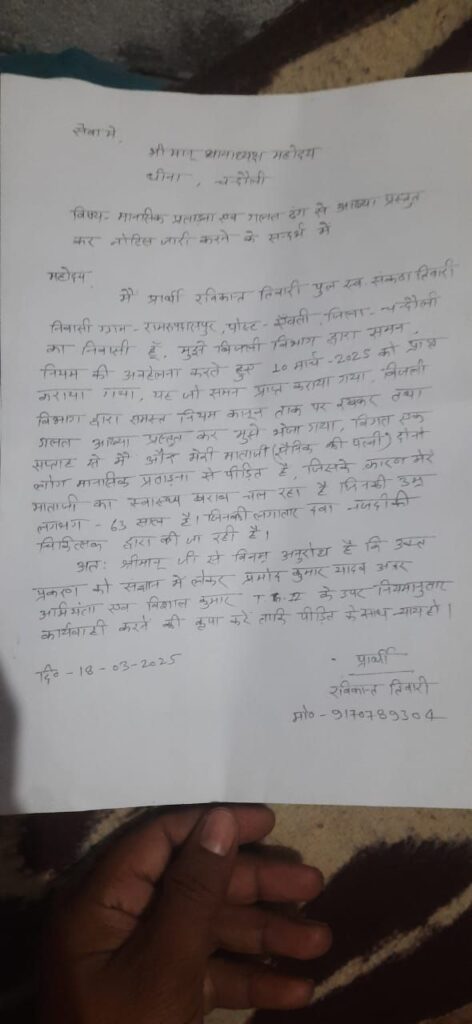 सेवा मे,
श्रीमान् थानाध्यक्ष महोदय
धीना, चन्दौली
विषय- मानसिक प्रताड़ना एवं गलत ढंग से आख्या प्रस्तुत
कर नोटिस जारी करने के सन्दर्भ में
महोदय,
मैं प्रार्थी रविकान्त तिवारी पुत्र स्व. संकठा तिवारी
निवासी ग्राम- पोस्ट- जिला- चन्दौली
का निवासी हूँ, मुझे बिजली विभाग द्वारा समन,
नियम की अवहेलना करते हुए 10 मार्च-2025 को प्राप्त
कराया गया, यह जो समन प्राप्त कराया गया, बिजली
विभाग द्वारा समस्त नियम कानून ताक पर रखकर तथा
गलत आख्या प्रस्तुत कर मुझे भेजा गया, विगत एक
सप्ताह से मैं और मेरी माताजी (सैनिक की पत्नी) दोनो
लोग मानसिक प्रताड़ना से पीड़ित है, जिसके कारण मेरे
माताजी का स्वास्थ्य खराब चल रहा है जिनकी उम्र
लगभग - 63 साल है। जिनकी लगातार दवा नजदीकी
चिकित्सक द्वारा की जा रही है।
अतः श्रीमान् जी से विनम्र अनुरोध है कि उक्त
प्रकरण को संज्ञान मे लेकर प्रमोद कुमार यादव अवर
अभियंता एवं विशाल कुमार के उपर नियमानुसार
कार्यवाही करने की कृपा करें ताकि पीड़ित के साथ न्याय हो।
दि० - 18 - 03 - 2025
प्रार्थी
रविकान्त तिवारी
मो० - 9170789304